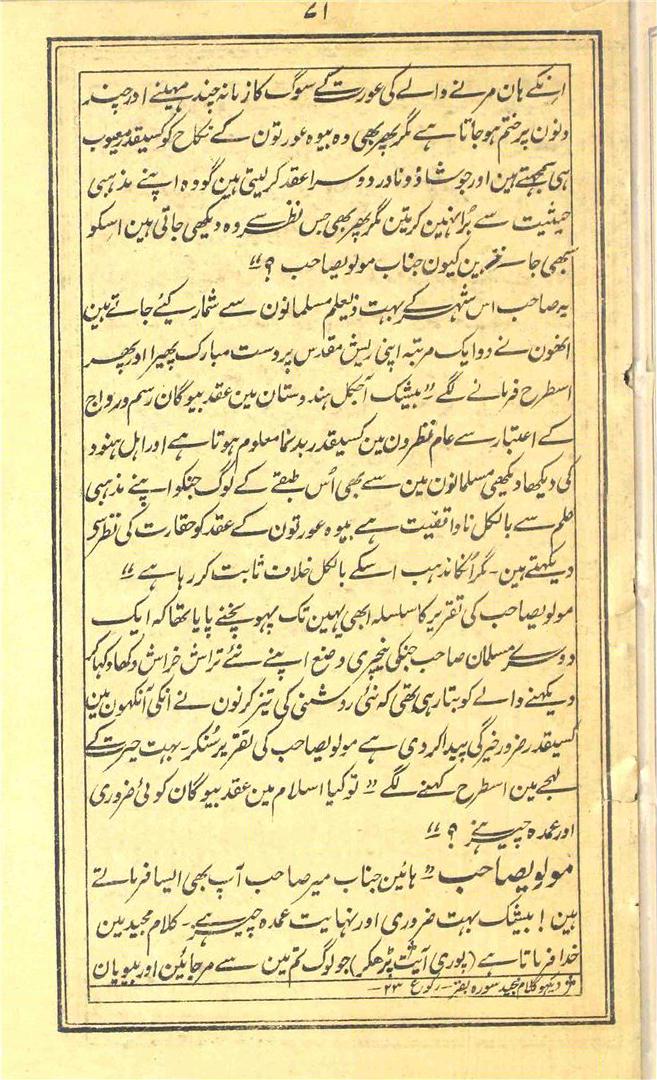 ۷۱
انکے ہان مرنے والے کی عورت کے سوگ کا زمانہ چند مہینے اور چند
دنون پر ختم ہو جاتا ہے مگر پھر بھی وہ بیوہ عورتون کے نکاح کو کسیقدر معیوب
ہی سمجھتے ہین اور جو شاذ و نادر دوسرا عقد کر لیتی ہین گو وہ اپنے مذہبی
حیثیت سے بُرا نہین کرتین مگر پھر بھی جس نظر سے وہ دیکھی جاتی ہین اسکو
سبھی جانتے ہین کیون جناب مولویصاحب ؟ ״
یہ صاحب اس شہر کے بہت ذیعلم مسلمانون سے شمار کیئے جاتے ہین
انھون نے دو ایک مرتبہ اپنی ریش مقدس پر دست مبارک پھیرا اور پھر
اسطرح فرمانے لگے ״ بیشک آجکل ہندوستان مین عقد بیوگان رسم و رواج
کے اعتبار سے عام نظرون مین کسیقدر بدنما معلوم ہوتا ہے اور اہل ہنود
کی دیکھا دیکھی مسلمانون مین سے بھی اُس طبقے کے لوگ جنکو اپنے مذہبی
علم سے بالکل ناواقفیت ہے بیوہ عورتون کے عقد کو حقارت کی نظر سے
دیکھتے ہین ۔ مگر انکا مذہب اسکے بالکل خلاف ثابت کر رہا ہے ״
مولویصاحب کی تقریر کا سلسلہ ابھی یہین تک پہوپنچنے پایا تھا کہ ایک
دوسرے مسلمان صاحب جنکی نیچری وضع اپنے نئے تراش خراش دکھا دکھا کر
دیکھنے والے کو بتا رہی تھی کہ نئی روشنی کی تیز کرنون نے انکی آنکھون مین
کسیقدر ضرور خیرگی پیدا کر دی ہے مولویصاحب کی تقریر سُنکر ۔ بہت حیرت کے
لہجے مین اسطرح کہنے لگے ״ تو کیا اسلام مین عقد بیوگان کوئی ضروری
اور عمدہ چیز ہے ؟ ״
مولویصاحب ״ ہائین جناب میر صاحب آپ بھی ایسا فرماتے
ہین ! بیشک بہت ضروری اور نہایت عمدہ چیز ہے ۔ کلام مجید مین
خدا فرماتا ہے (پوری آیت پڑھکر) جو لوگ تم مین سے مر جائین اور بیویان
دیکھو کلام مجید سورہ بقر ۔ رکوع ۲۳ ۔